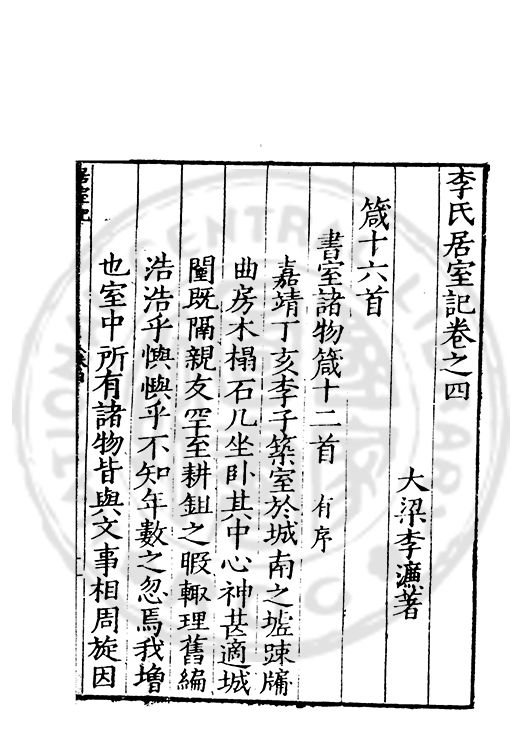 李氏居室記卷之四
大梁李濂著
箴十六首
書室諸物箴十二首 有序
嘉靖丁亥李子築室於城南之墟踈牖
曲房木榻石几坐卧其中心神甚適城
闉既隔親友罕至耕鉏之暇輙理舊編
浩浩乎懊懊乎不知年數之忽焉我增
也室中所有諸物皆與文事相周旋因